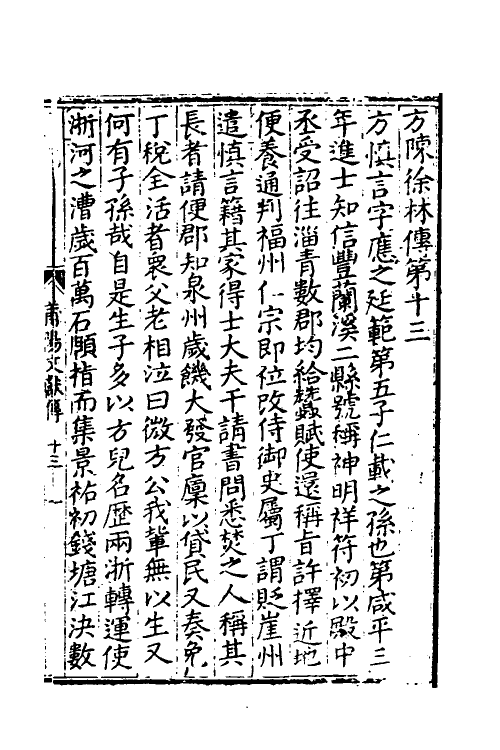 方陳徐林傳第十三
方慎言字應之廷範第五子仁載之孫也第咸平三
年進士知信豐蘭溪二縣號稱神明祥符初以殿中
丞受詔往淄青數郡均給蠶賦使還稱旨許擇近地
便養通判福州仁宗即位改侍御史屬丁謂貶崖州
遣慎言籍其家得士大夫干請書問悉焚之人稱其
長者請便郡知泉州歲饑大發官廩以貸民又奏免
丁稅全活者衆父老相泣曰微方公我輩無以生又
何有子孫哉自是生子多以方兒名歷兩浙轉運使
浙河之漕歲百萬石願指而集景祐初錢塘江決數
莆陽文獻傳 十三 一